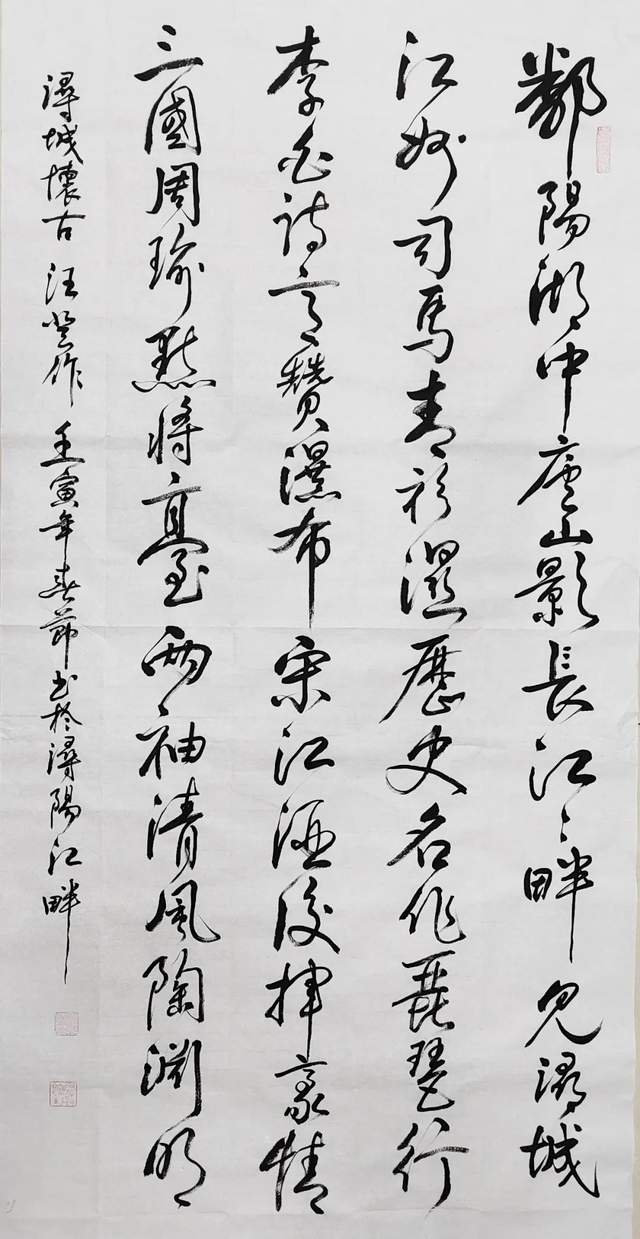 鄱陽湖中廬山影長江〻畔見潯城
江州司馬青衫濕歷史名作琵琶行
李白詩言贊瀑布宋江酒後揮豪情
三國周瑜點將臺兩袖清風陶淵明
潯城懷古 汪作 壬寅年春節書於潯陽江畔